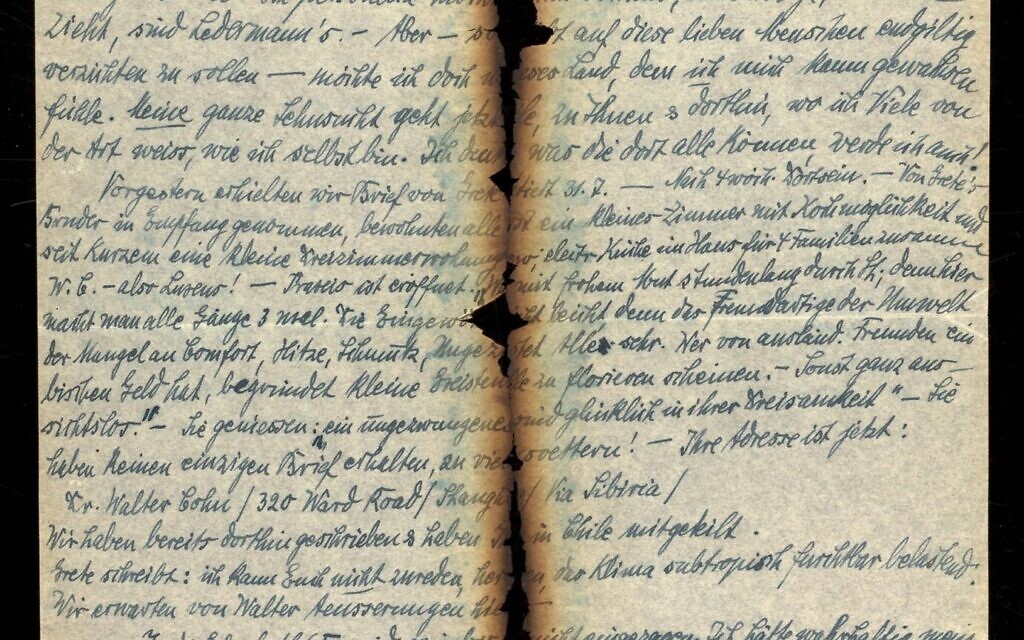 zieht, sind Ledermann's. – Aber – auf diese lieben Menschen endgiltig
verzichten zu sollen – möchte ich doch Land, dem ich mich kaum gewachsen
fühle. Meine ganze Sehnsucht geht jetzt zu Ihnen & dorthin, wo ich Viele von
der Art weiss, wie ich selbst bin. Ich was die dort alle können, werde ich auch!
Vorgestern erhielten wir Brief von Grete 31.7. – Nach 4 wöch. Dortsein. – Von Grete's
Bruder in Empfang genommen, bewohnten alle ein kleines Zimmer mit Kochmöglichkeit und
seit Kurzem eine kleine Dreizimmerwohnung elektr Küche im Haus für 4 Familien zusammen
W.C. – also Luxus! – Praxis ist eröffnet. mit frohem Mut stundenlang durch St, denn hier
macht man alle Gänge 3 mal. Die leicht denn das Fremdartige der Umwelt
der Mangel an Comfort, Hitze, Schmutz, Alle sehr. Wer von ausländ. Freunden ein
bischen Geld hat, begründet kleine zu florieren scheinen. – Sonst ganz aus-
sichtslos." – Sie geniessen: "ein ungezwungenes sind glücklich in ihrer Dreisamkeit" – Sie
haben keinen einzigen Brief erhalten, an – Ihre Adresse ist jetzt:
Dr. Walter Cohn / 320 Ward Road / Shanghai / Via Sibiria /
Wir haben bereits dorthin geschrieben & haben in Chile mitgeteilt.
Grete schreibt: ich kann Euch nicht zureden, das Klima subtropisch furchtbar belastend.
Wir erwarten von Walter Aeusserungen
nicht Ich hätte